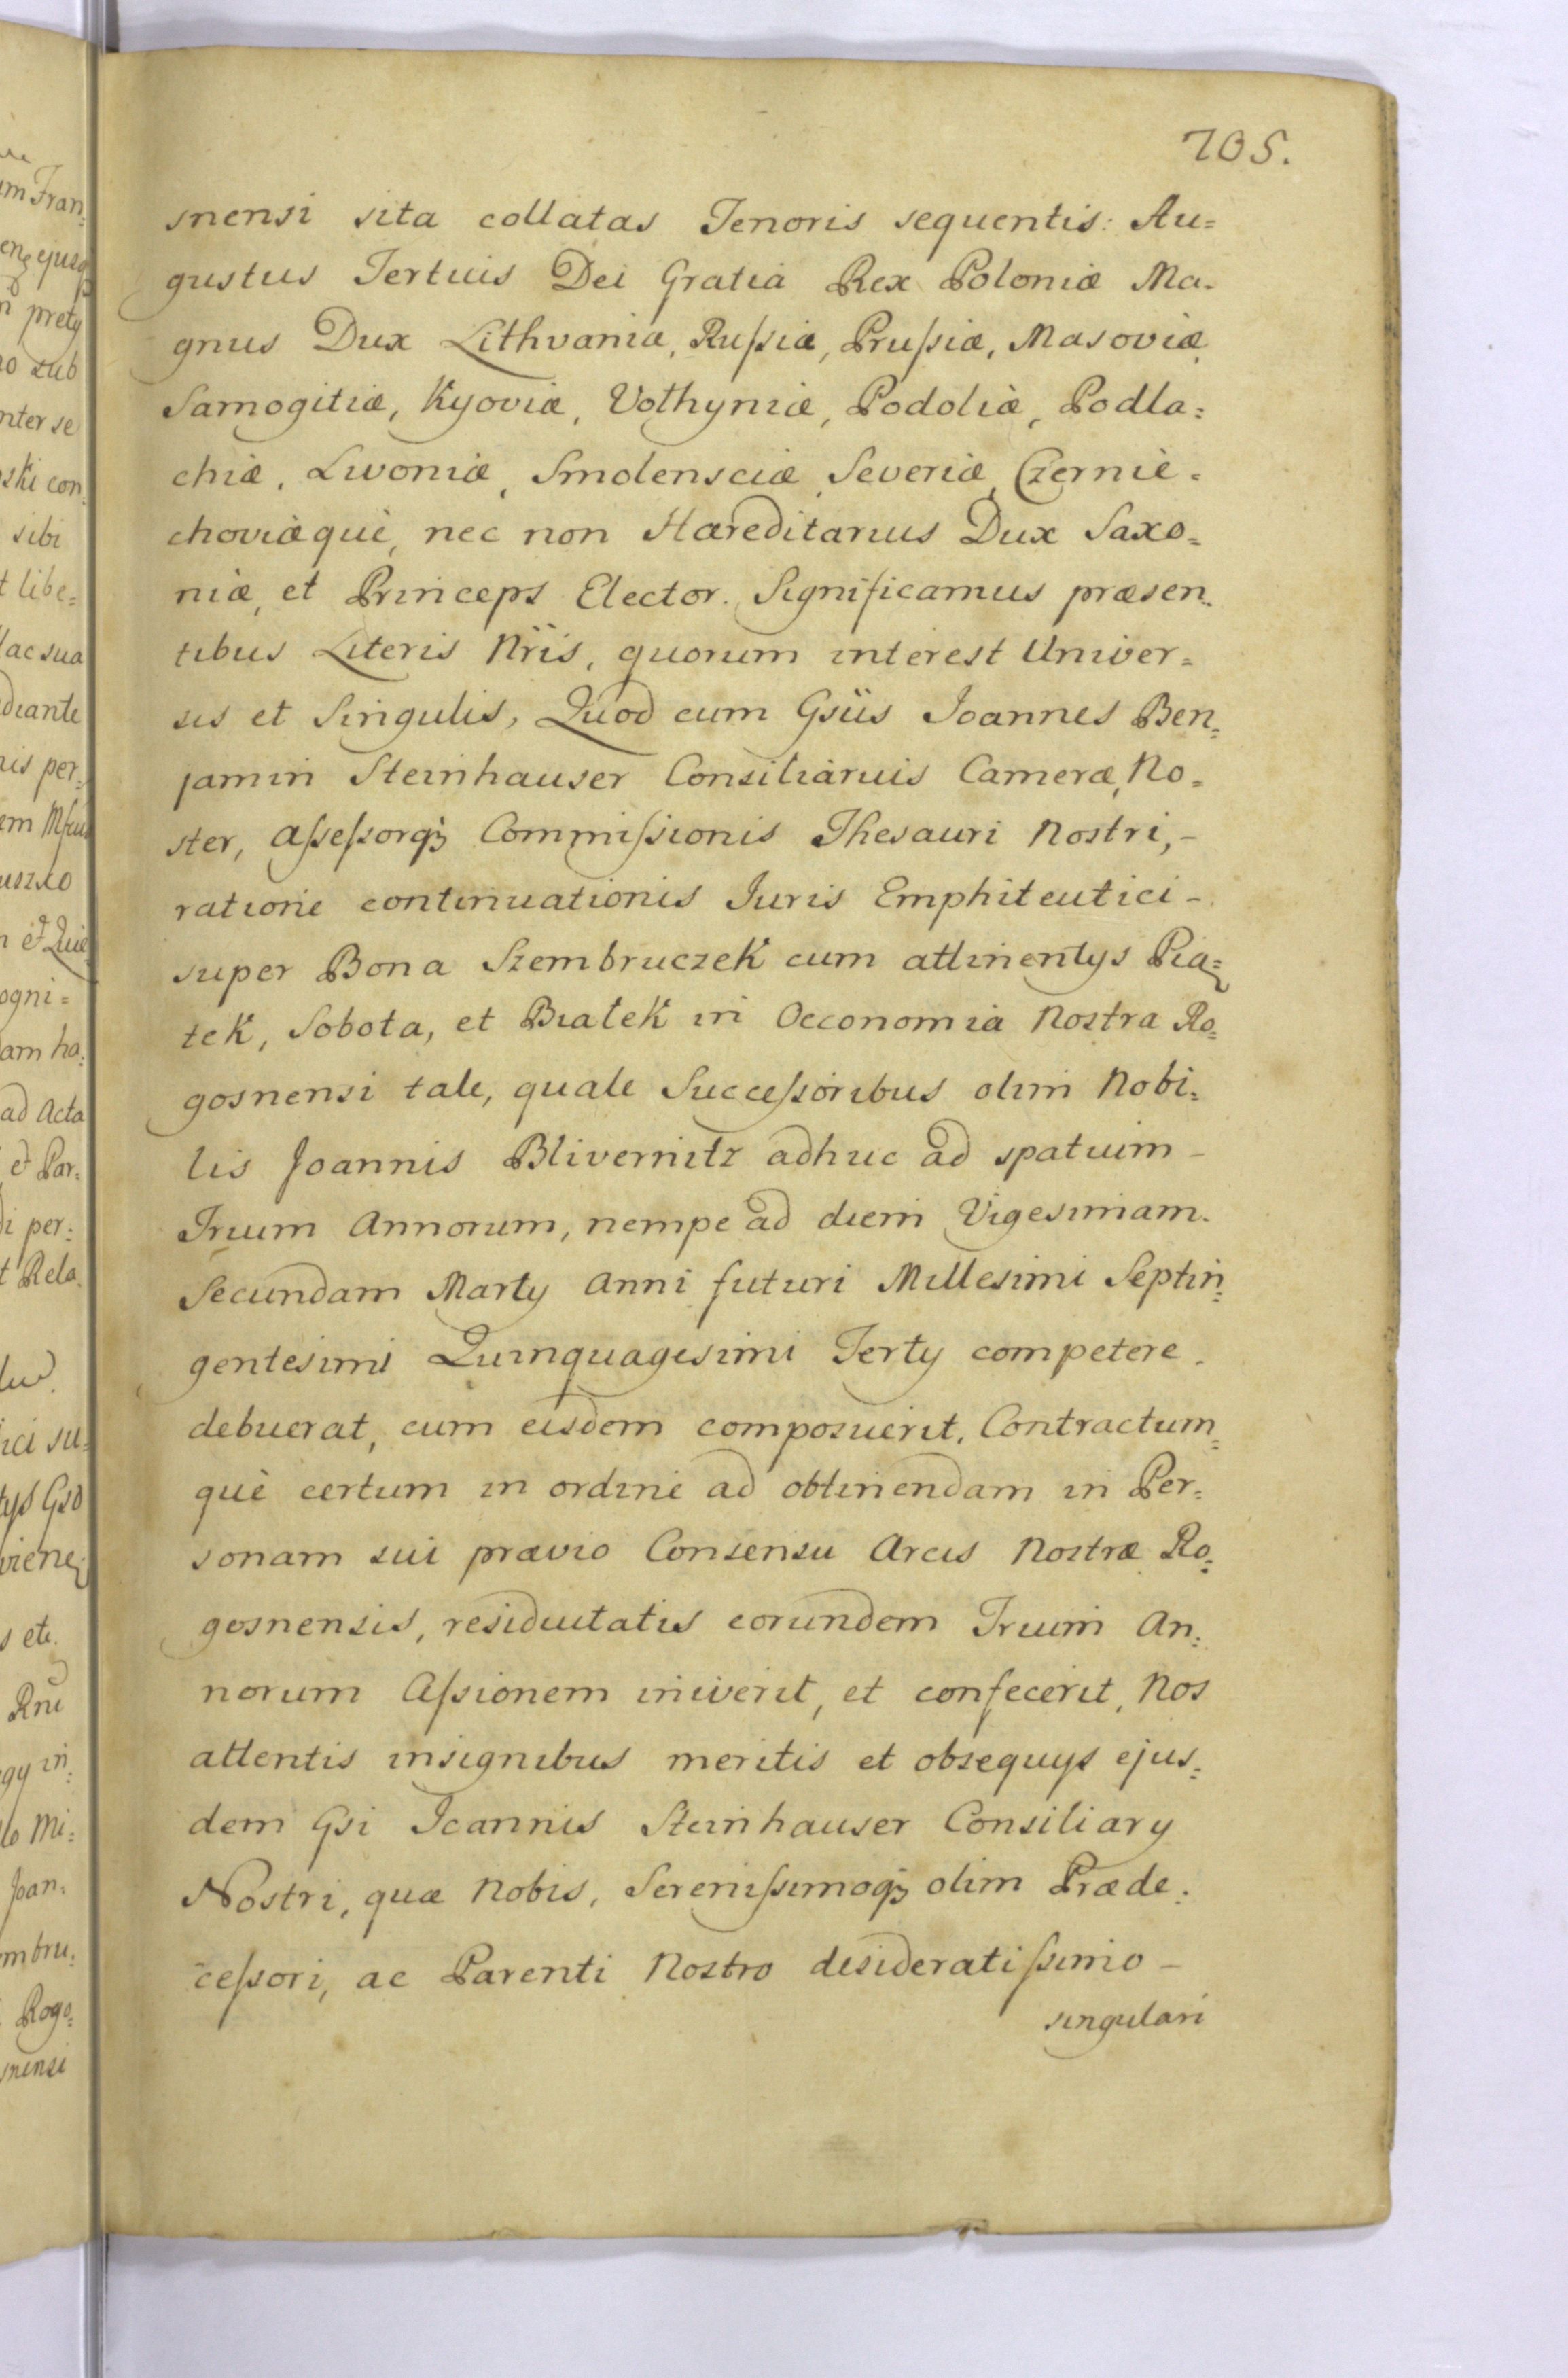 705.
snensi sita collatas Tenoris sequentis: Au=
gustus Tertius Dei Gratia Rex Poloniæ Ma=
gnus Dux Lithvaniæ, Rußiæ, Prußiæ, Masoviæ,
Samogitiæ, Kyoviæ, Volhyniæ, Podoliæ, Podla=
chiæ, Livoniæ, Smolensciæ, Severiæ, Czernie=
choviæque, nec non Hæreditarius Dux Saxo=
niæ, et Princeps Elector. Significamus præsen=
tibus Literis Nris, quorum interest Univer=
sis et Singulis, Quod cum Gsüs Joannes Ben=
jamin Steinhauser Consiliarius Cameræ No=
ster, Aßeßorq3 Commißionis Thesauri Nostri,-
ratione continuationis Juris Emphiteutici-
super Bona Szembruczek cum attinentys Pią=
tek, Sobota, et Białek in Oeconomia Nostra Ro=
gosnensi tale, quale Succeßoribus olim Nobi=
lis Joannis Blivernitz adhuc ad spatium-
Trium Annorum, nempe ad diem Vigesimam.
Secundam Marty Anni futuri Millesimi Septin=
gentesimi Quinquagesimi Terty competere.
debuerat, cum eisdem composuerit, Contractum=
què certum in ordine ad obtinendam in Per=
sonam sui prævio Consensu Arcis Nostræ Ro=
gosnensis, residuitatis eorundem Trium An=
norum Aßionem iniverit, et confecerit, Nos
attentis insignibus meritis et obsequys ejus=
dem Gsi Joannis Steinhauser Consiliary
Nostri, quæ Nobis, Serenißimoq3 olim Præde=
ceßori, ac Parenti Nostro desideratißimo-
singulari